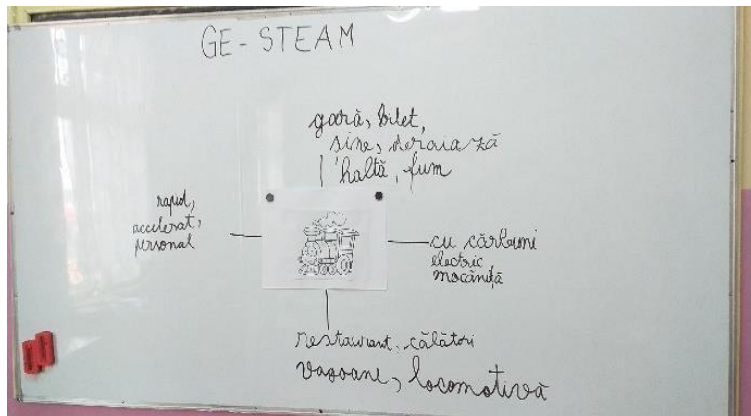 GE-STEAM
gară, bilet,
șine, deraiază
haltă, fum
rapid,
accelerat,
personal
cu cărbuni
electric
mocăniță
restaurant, călători
vagoane, locomotivă